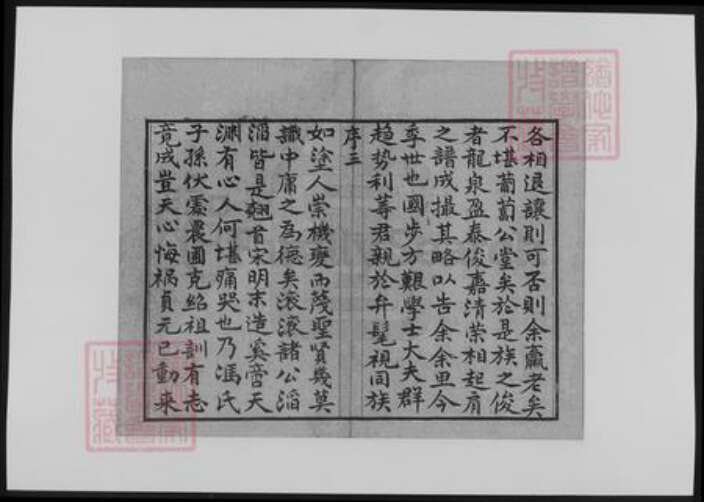 各相退讓則可否則余羸老矣
不堪葡蔔公堂矣於是族之俊
者龍泉盈泰俊嘉清榮相起肩
之譜成撮其略以告余余思今
季世也國步方艱學士大夫群
趋势利等君親於弁髦視同族
序三
如塗人崇機變而薎聖賢幾莫
識中庸之為德矣滚滚諸公滔
滔皆是翘首宋明末造奚啻天
渊有心人何堪痛哭也乃馮氏
子孫伏處農圃克紹祖訓有志
竟成豈天心悔禍貞元已動来